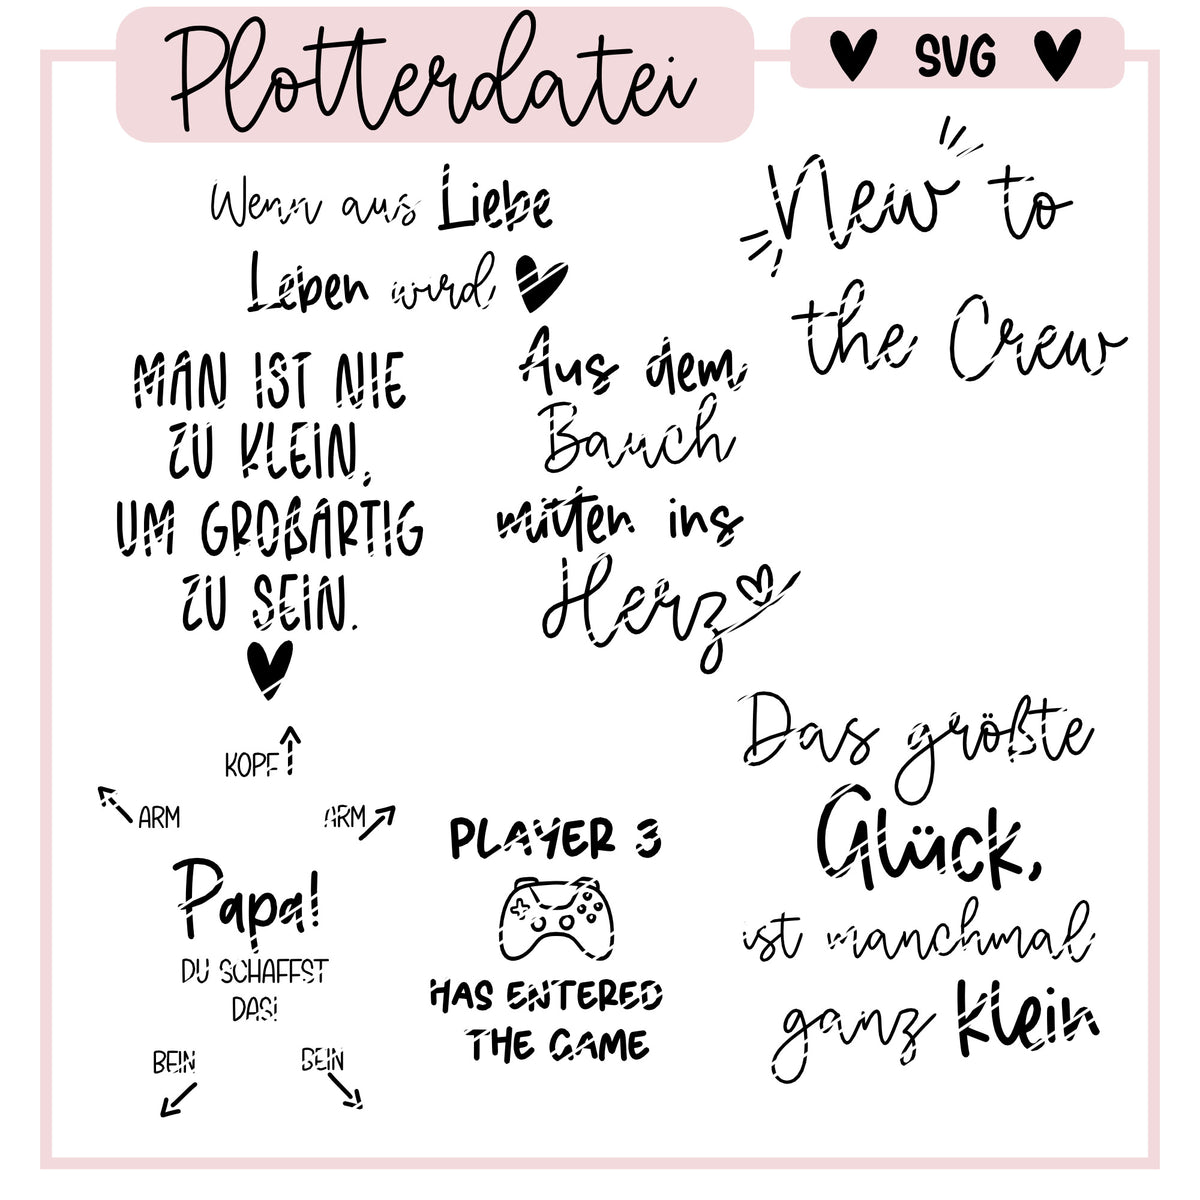 Plotterdatei
SVG
Wenn aus Liebe
Leben wird
New to
the Crew
MAN IST NIE
ZU KLEIN,
UM GROßARTIG
ZU SEIN.
Aus dem
Bauch
mitten ins
Herz
KOPF
ARM
ARM
Papa!
DU SCHAFFST
DAS!
BEIN
BEIN
PLAYER 3
HAS ENTERED
THE GAME
Das größte
Glück,
ist manchmal
ganz klein